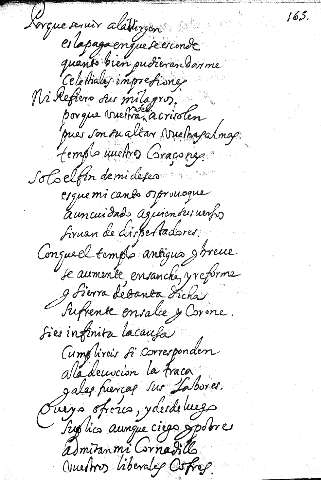 165.
Porque servir a la Virgen
es la paga en que se esconde
quanto bien pudieran darme
Celestiales impresiones
Ni Refiero sus milagros,
porque vuestra fe acrisolen
pues son su altar vuestras palmas
templo vuestros Coraçones.
Solo el fin de mi deseo
es que mi canto os prouoque
a un cuidado a quien sus versos
siruan de despertadores.
Conque el templo antiguo y breue
se aumente, ensanche, y reforme
y Sierra de tanta dicha
su frente ensalce y Corone.
Si es infinita la causa
Cumplireis si corresponden
a la deuocion la traça
y a las fuerças sus labores.
Cuyo ofrezco, y desde luego
suplico aunque ciego y pobres
admitan mi Cornadillo
vuestros liberales Cofres.